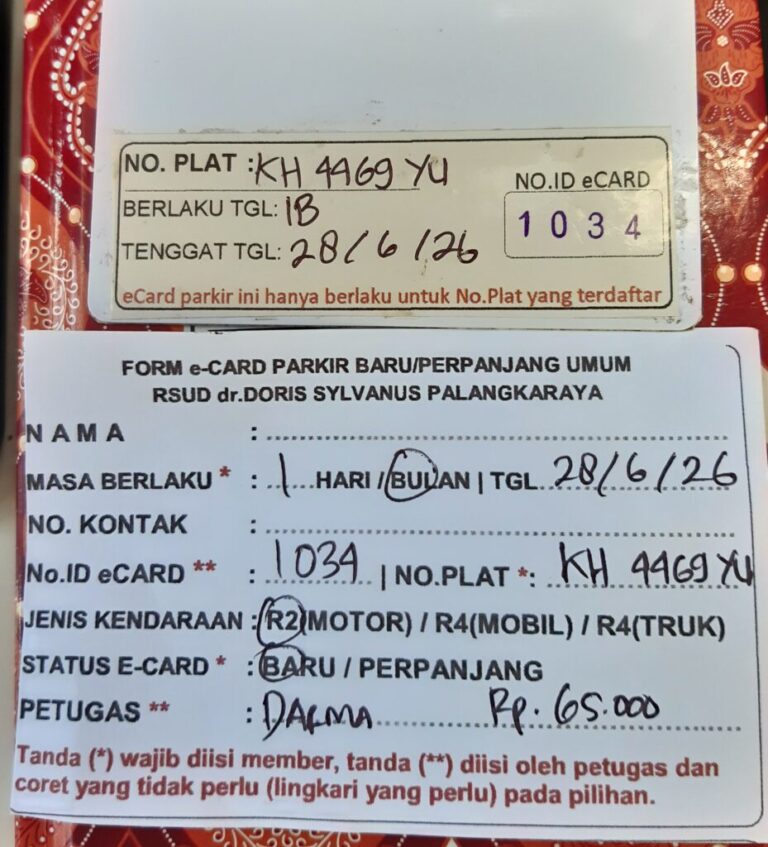 NO. PLAT : KH 4469 YU
NO.ID eCARD
BERLAKU TGL: 1B
1 0 3 4
TENGGAT TGL: 28/6/26
eCard parkir ini hanya berlaku untuk No.Plat yang terdaftar
FORM e-CARD PARKIR BARU/PERPANJANG UMUM
RSUD dr.DORIS SYLVANUS PALANGKARAYA
N A M A :
MASA BERLAKU * : 1 HARI / BULAN | TGL 28/6/26
NO. KONTAK :
No.ID eCARD ** : 1034 | NO.PLAT *: KH 4469 YU
JENIS KENDARAAN : R2(MOTOR) / R4(MOBIL) / R4(TRUK)
STATUS E-CARD * : BARU / PERPANJANG
PETUGAS ** : DARMA Rp. 65.000
Tanda (*) wajib diisi member, tanda (**) diisi oleh petugas dan
coret yang tidak perlu (lingkari yang perlu) pada pilihan.